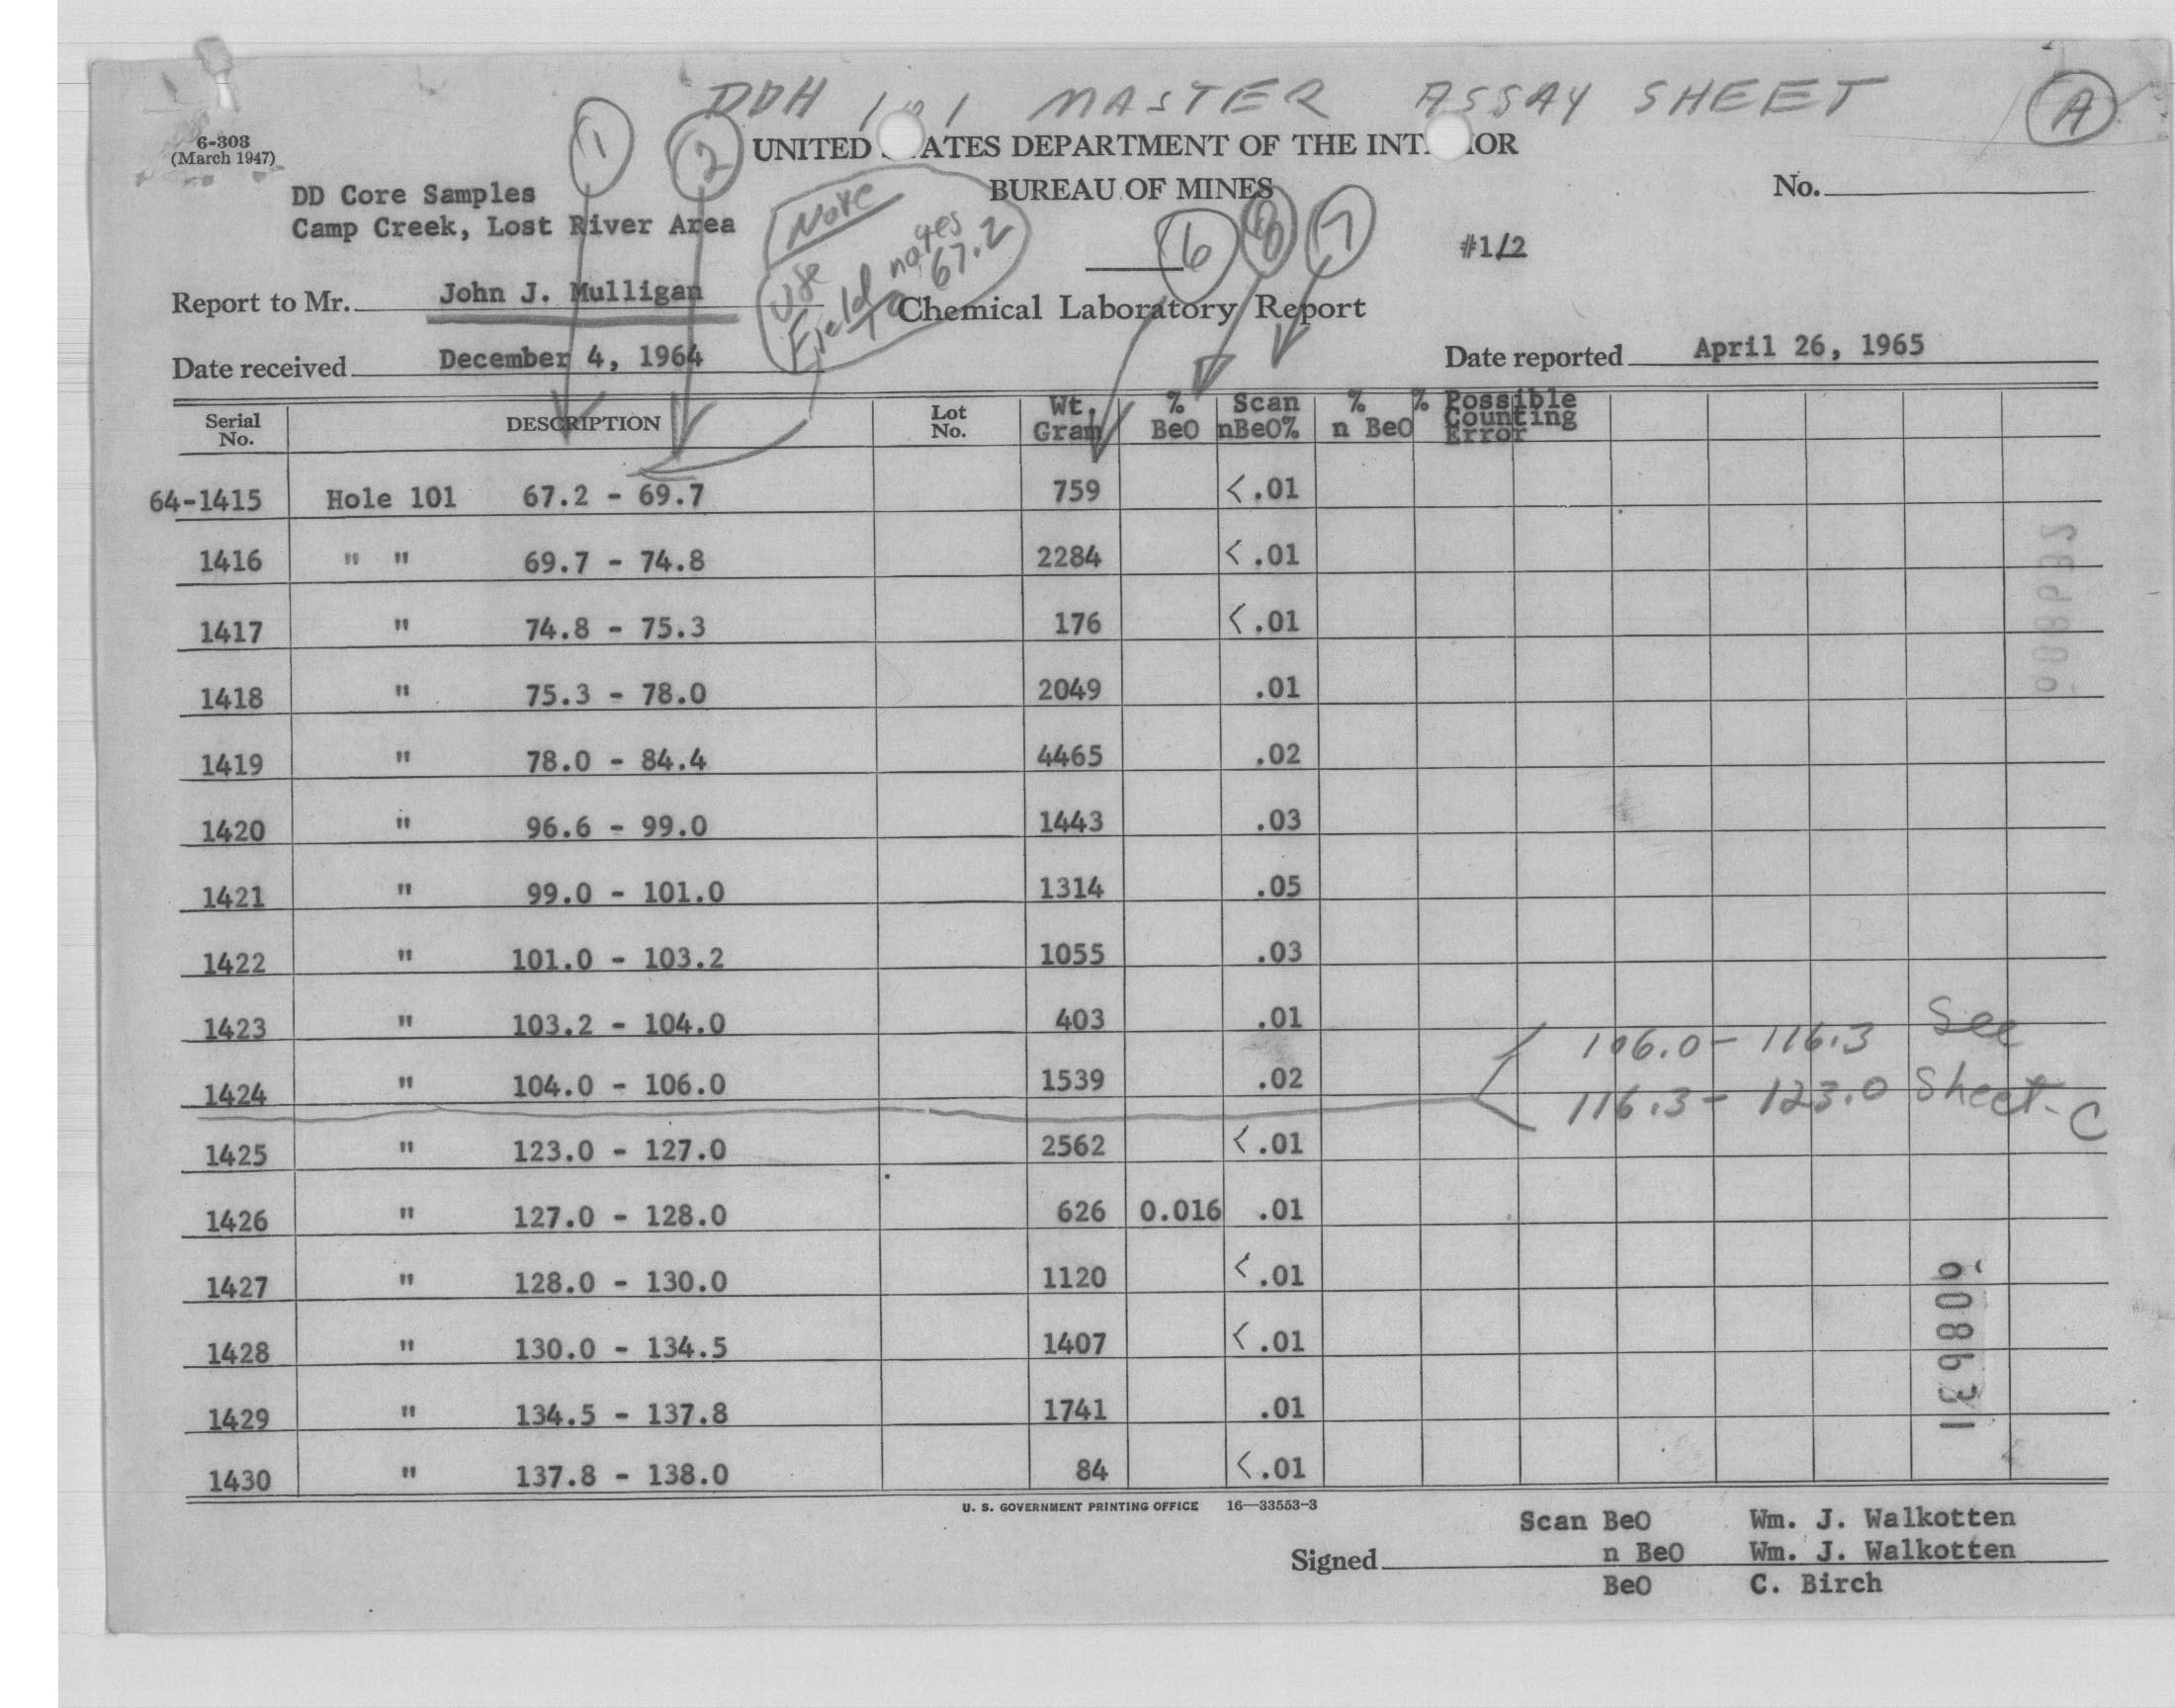 DDH 101 MASTER ASSAY SHEET A
6-303
(March 1947)
1 2
UNITED ATES DEPARTMENT OF THE INT OR
BUREAU OF MINES
No.
DD Core Samples
Camp Creek, Lost River Area
Note
Use
Field notes
To 67.2
6 8 7
#1/2
Report to Mr. John J. Mulligan
Chemical Laboratory Report
Date received December 4, 1964
Date reported April 26, 1965
Serial No. DESCRIPTION Lot No. Wt. Gram % BeO Scan nBeO% % n BeO % Possible Counting Error
64-1415 Hole 101 67.2 - 69.7 759 <.01
1416 " " 69.7 - 74.8 2284 <.01
1417 " 74.8 - 75.3 176 <.01
1418 " 75.3 - 78.0 2049 .01
1419 " 78.0 - 84.4 4465 .02
1420 " 96.6 - 99.0 1443 .03
1421 " 99.0 - 101.0 1314 .05
1422 " 101.0 - 103.2 1055 .03
1423 " 103.2 - 104.0 403 .01
106.0 - 116.3 See
1424 " 104.0 - 106.0 1539 .02
116.3 - 123.0 Sheet - C
1425 " 123.0 - 127.0 2562 <.01
1426 " 127.0 - 128.0 626 0.016 .01
1427 " 128.0 - 130.0 1120 <.01
1428 " 130.0 - 134.5 1407 <.01
1429 " 134.5 - 137.8 1741 .01
1430 " 137.8 - 138.0 84 <.01
U. S. GOVERNMENT PRINTING OFFICE 16—33553-3
Scan BeO Wm. J. Walkotten
Signed n BeO Wm. J. Walkotten
BeO C. Birch